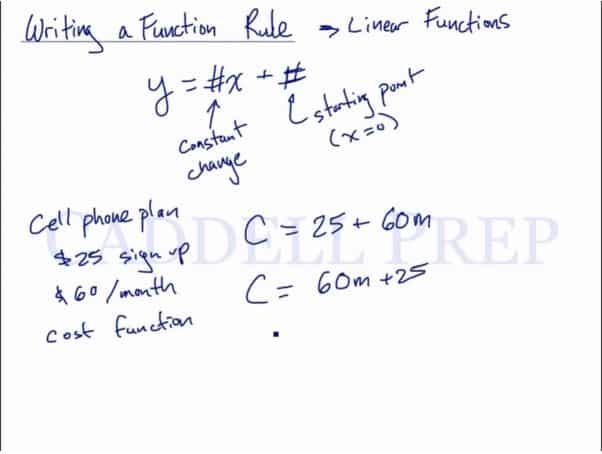 Writing a Function Rule → Linear Functions
y = #x + #
constant change
starting point (x=0)
Cell phone plan
$25 sign up
$60/month
cost function
C = 25 + 60m
C = 60m + 25
CADDELL PREP